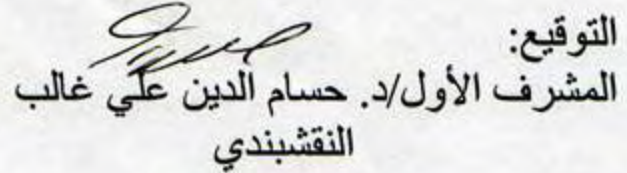 التوقيع:
المشرف الأول/د. حسام الدين علي غالب
النقشبندي